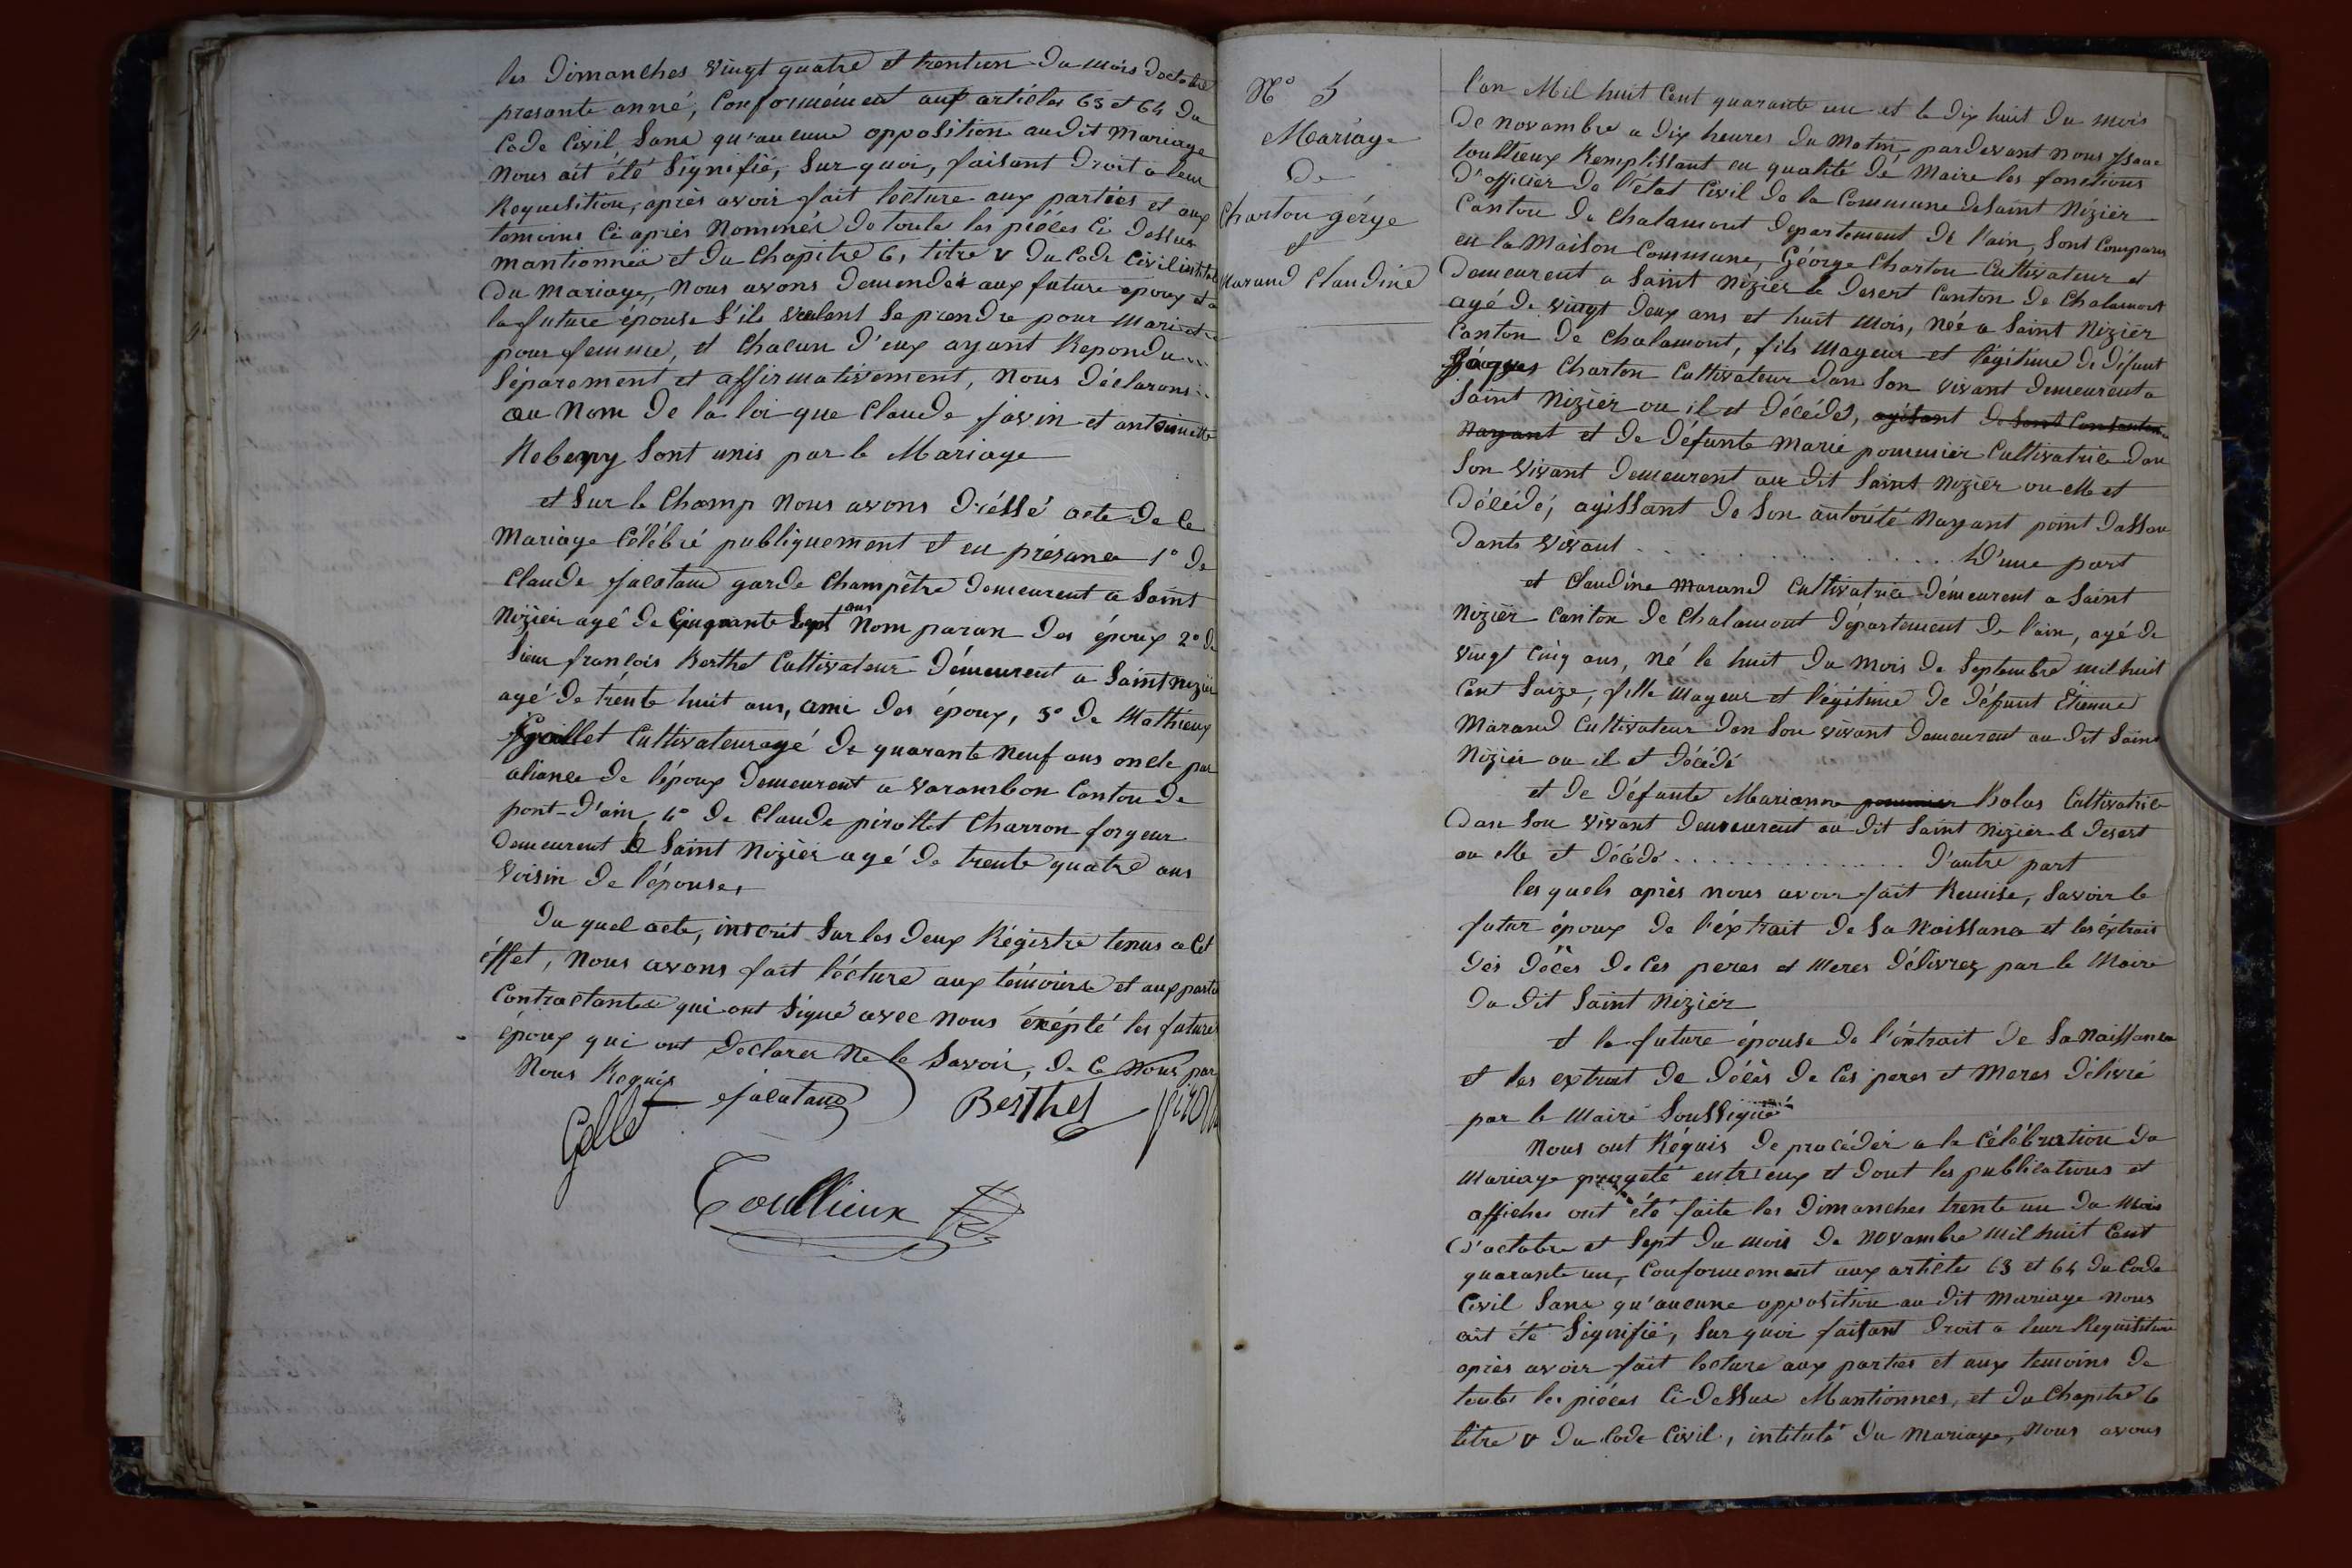 les Dimanches vingt quatre et trentun du mois doctobre
presante anné, Conformément aux articles 63 et 64 du
Code Civil, Sans qu'aucune opposition audit Mariage
Nous ait été Signifié, Sur quoi, faisant Droit a leur
Requisition, après avoir fait lecture aux parties et aux
temoins Ci après Nommés de toute les piéces Ci dessus
mantionnéà et du Chapitre 6, titre V du Code Civil intitulé
du Mariage, Nous avons demendés aux future epoux et a
la future épouse S'ils veulent Se prendre pour Mari et
pour femme, et Chacun d'eux ayant Repondu
Séparement et affirmativement, Nous Déclarons
au Nom de la loi que Claude favin et antoinette
Reberry Sont unis par le Mariage
et Sur le Champ Nous avons dréssé acte de le
Mariage Célébré publiquement et en présance 1° de
Claude Jacotane garde Champêtre demeurent a Saint
Nizier agé de Cinquante Sept ans Nom paran des époux 2° de
Sieur françois Berthet Cultivateur démeurent a Saint Nizier
agé de trente huit ans, ami des époux, 3° de Mathieux
Gallet Cultivateur agé de quarante Neuf ans oncle par
aliance de l'époux demeurent a Varambon Canton de
pont-d'ain, 4° de Claude pirollet Charron forgeur
demeurent a Saint Nizier agé de trente quatre ans
Voisin de l'épouse,
Du quel acte, inscrit Sur les deux Régistre tenus a Cet
éffet, Nous avons fait lécture aux témoins et aux parti
Contractantes qui ont Signé avec Nous éxépté les future
époux qui ont déclarer Ne le Savoir, de Ce Nous par
Nous Requis
Gellet Jacotane Berthet
Toullieux
N° 5
Mariage
De
Charton gérge
et
Marand Claudine
l'an Mil huit Cent quarante un et le dix huit du mois
de novambre a dix heures du Matin, pardevant nous Isaac
toullieux Remplissant en qualité de Maire les fonctions
d'officier de l'état Civil de la Commune de Saint Nizier
Canton de Chalamont departement de l'ain, Sont Comparus
en la Maison Commune, Géorge Charton Cultivateur et
demeurent a Saint Nizier le desert Canton de Chalamont
agé de vingt deux ans et huit mois, née a Saint Nizier
Canton de Chalamont, fils mageur et légitime de défunt
Jáques Charton Cultivateur dan Son vivant demeurent a
Saint Nizier ou il et décédes, agisant de Sont Consantem
Nayant et de défunte Marie pommier Cultivatrice dan
Son vivant demeurent au dit Saint Nizier ou elle et
décédé, agissant de Son autorité Nayant point dassan
dants vivant . . . . . . . . . . D'une part
et Claudine Marand Cultivatrice démeurent a Saint
Nizier Canton de Chalamont département de l'ain, agé de
vingt Cinq ans, né le huit du mois de Septembre mil huit
Cent Saize, fille mageur et légitime de défunt Étienne
Marand Cultivateur dan Son vivant demeurent au dit Saint
Nizier ou il et décédé
et de défunte Marianne pommier Bolas Cultivatrice
Dan Son vivant demeurent au dit Saint Nizier le desert
ou elle et décédé . . . . . . . . . . D'autre part
lesquels après nous avoir fait Remise, Savoir le
futur époux de l'éxtrait de Sa Naissance et les éxtrais
des décès de Ces peres et Meres délivrez par le Maire
du dit Saint Nizier
et la future épouse de l'éxtrait de Sa Naissance
et les extrait de décès de Ces peres et Meres délivré
par le Maire Soussigné
Nous ont Réquis de procéder a la Célébration du
Mariage progeté entr'eux et dont les publications et
affiches ont été faite les dimanches trente un du mois
d'octobre et Sept du mois de novambre mil huit Cent
quarante un, Conformement aux articles 63 et 64 du Code
Civil Sans qu'aucune opposition au dit Mariage Nous
ait été Signifié, Sur quoi faisant droit a leur Requisition
après avoir fait lecture aux parties et aux temoins de
toutes les pièces Ci dessus Mantionnés, et du Chapitre 6
titre V du Code Civil, intitulé du Mariage, Nous avons